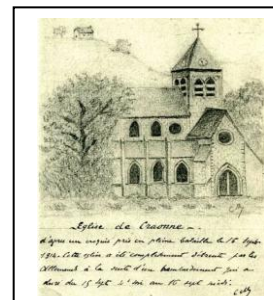 Eglise de Craonne –
d'après un croquis pris en pleine bataille le 16 Sept
1914. Cette église a été complètement détruite par les
Allemands à la suite d'un bombardement qui a
duré du 15 Sept au 16 sept midi.